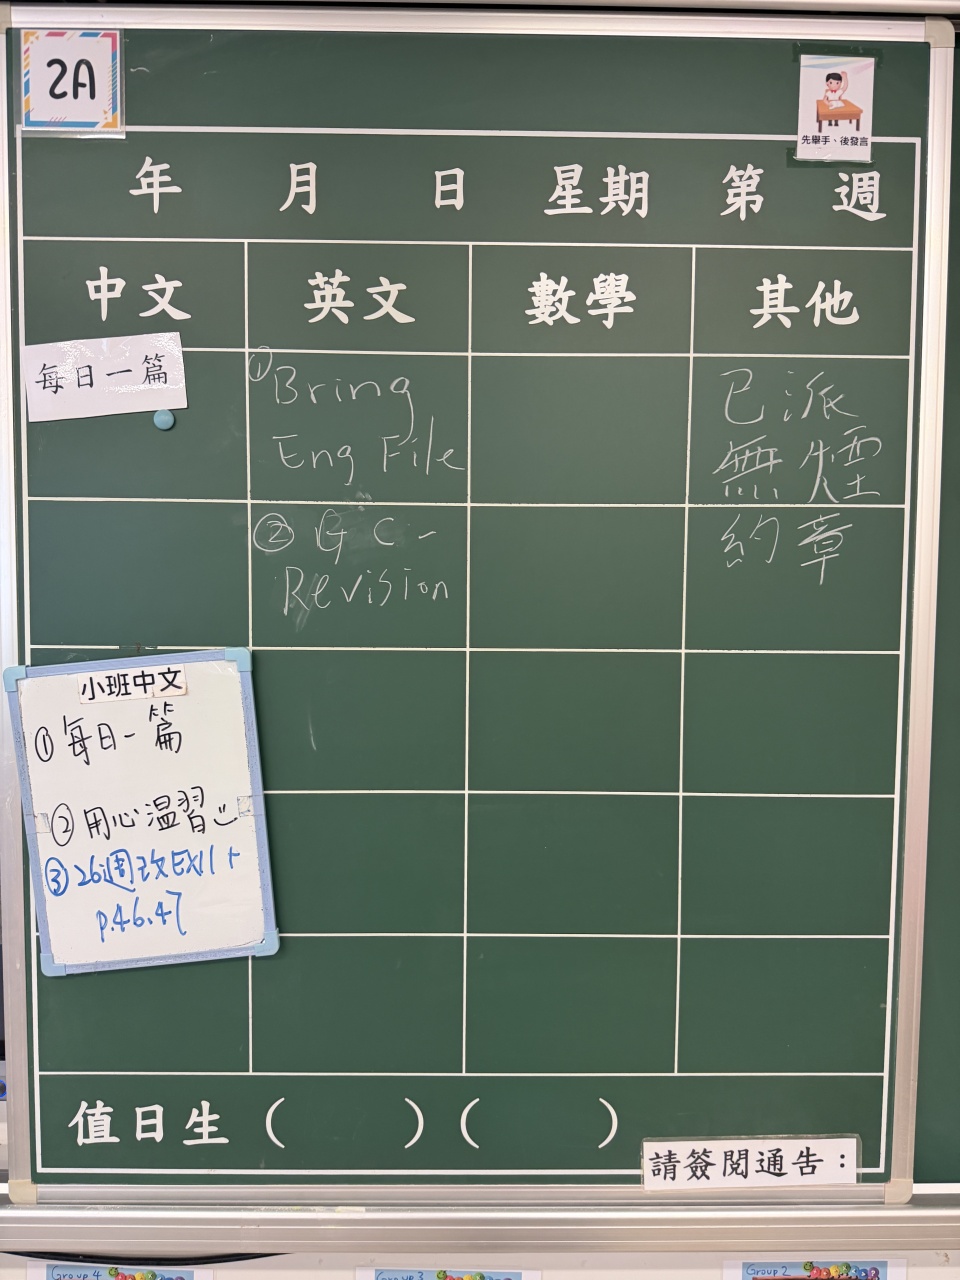 2A
先舉手、後發言
年 月 日 星期 第 週
中文 英文 數學 其他
每日一篇
① Bring
Eng File
② GC -
Revision
已派
無煙
約章
小班中文
① 每日一篇
② 用心溫習
③ 26週改EX11+
p.46.47
值日生 ( ) ( )
請簽閱通告：
Group 4
Group 3
Group 2